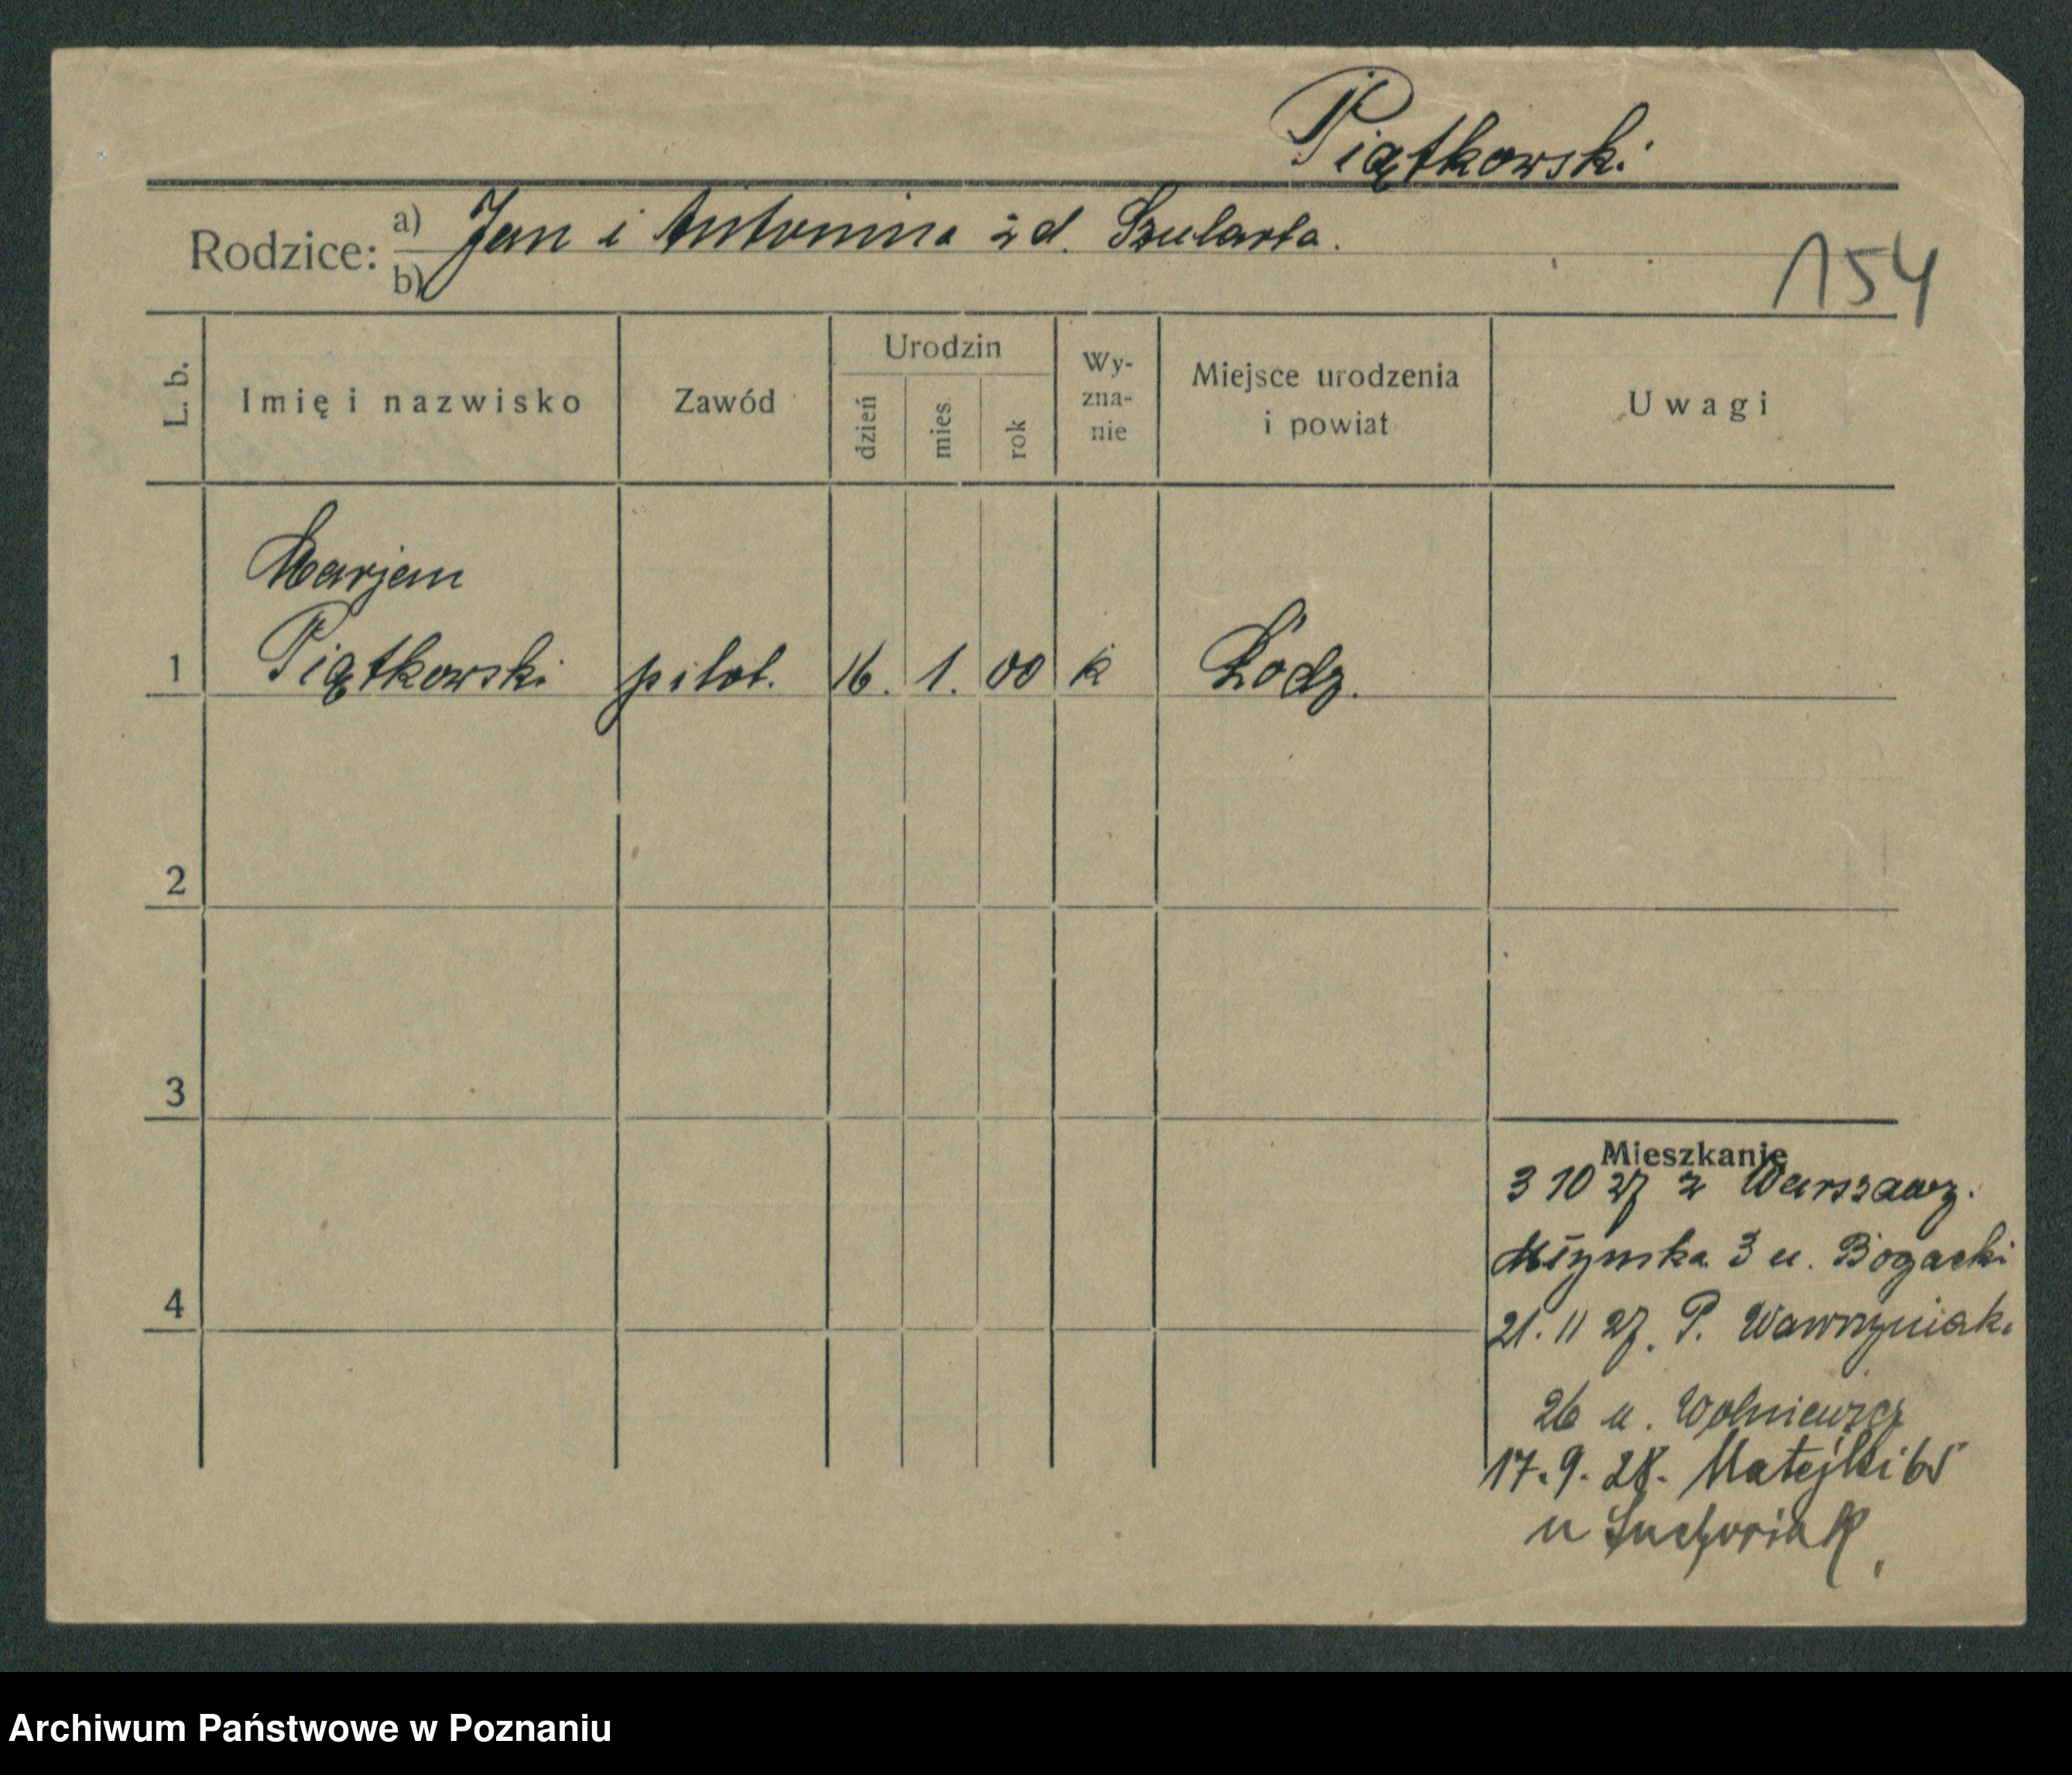 Piątkowski
Rodzice: a) Jan i Antonina z d.
b)
154
L. b.
Imię i nazwisko
Zawód
Urodzin
dzień
mies.
rok
Wy-
zna-
nie
Miejsce urodzenia
i powiat
Uwagi
Marjan
1 Piątkowski pilot. 16. 1. 00 k Łódz.
2
3
4
Mieszkanie
3 10 27 z Warszawy.
Młynska 3 u. Bogacki
21. 11 27. P. Wawrzyniak.
26 u. Wolniewicz
17. 9. 28. Matejki 65
u
Archiwum Państwowe w Poznaniu